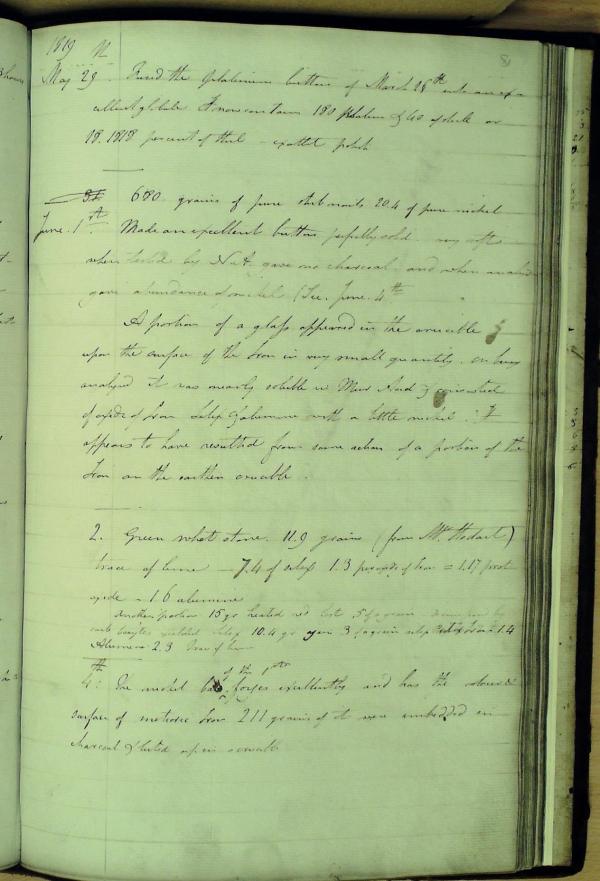 1819
8
May 29. Fused the platinum button of March 28th into an ex-
cellent globule. It now contains 180 platina & 40 of steel or
18.1818 percent of steel - excellent polish
680 grains of pure steel 20.4 of pure nickel
June. 1st Made an excellent button perfectly solid very soft
when tested by N A gave no charcoal: and when analysed
gave abundance of nickel (See. June. 4th
A portion of a glass appeared in the crucible &
upon the surface of the Iron in very small quantity. on being
analysed it was nearly soluble in Mur Acid & consisted
of oxide of Iron Silex & alumine with a little nickel: It
appears to have resulted from some action of a portion of the
Iron on the earthen crucible.
2. Green whet stone. 11.9 grains (from Mr. Stodart)
trace of lime - 7.4 of silex 1.3 peroxide of Iron = 1.17 prot
oxide - 1.6 alumine
Another portion 15 grs heated red lost .5 of a grain
yielded Silex 10.4 grs 3 of a grain silex = 1.4
Alumine 2.3 trace of lime
4th The nickel of the 1st forges excellently and has the colour &
surface of meteoric Iron 211 grains of it were imbedded in
charcoal & luted up in crucible